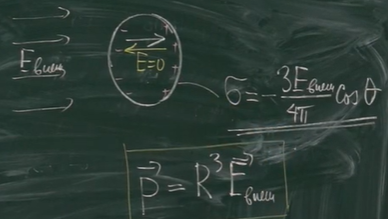 E⃗внеш
E=0
σ = - 3Eвнеш/4π cos θ
p⃗ = R³ E⃗внеш